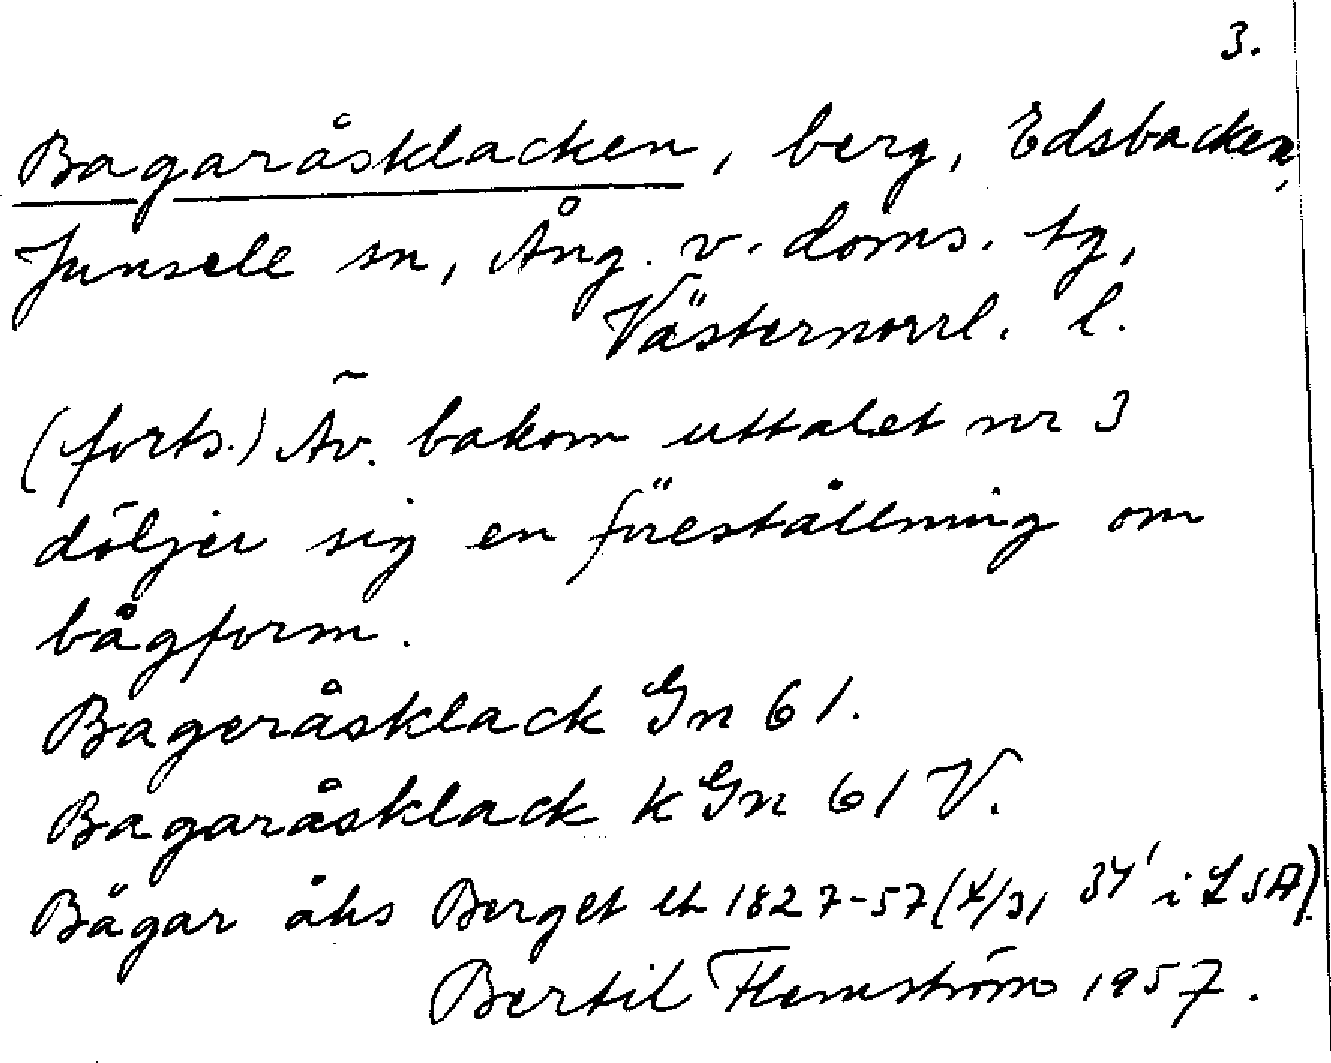 3.
Bagaråsklacken, berg, Edsbacken,
Junsele sn, Ång. v. doms. tg,
Västernorrl. l.
(forts.) Äv. bakom uttalet nr 3
döljer sig en föreställning om
bågform.
Bageråsklack Gn 61.
Bagaråsklack k Gn 61 V.
Bågar åhs Berget 1827-57 (X/3, 34' i LSA).
Bertil Flemström 1957.